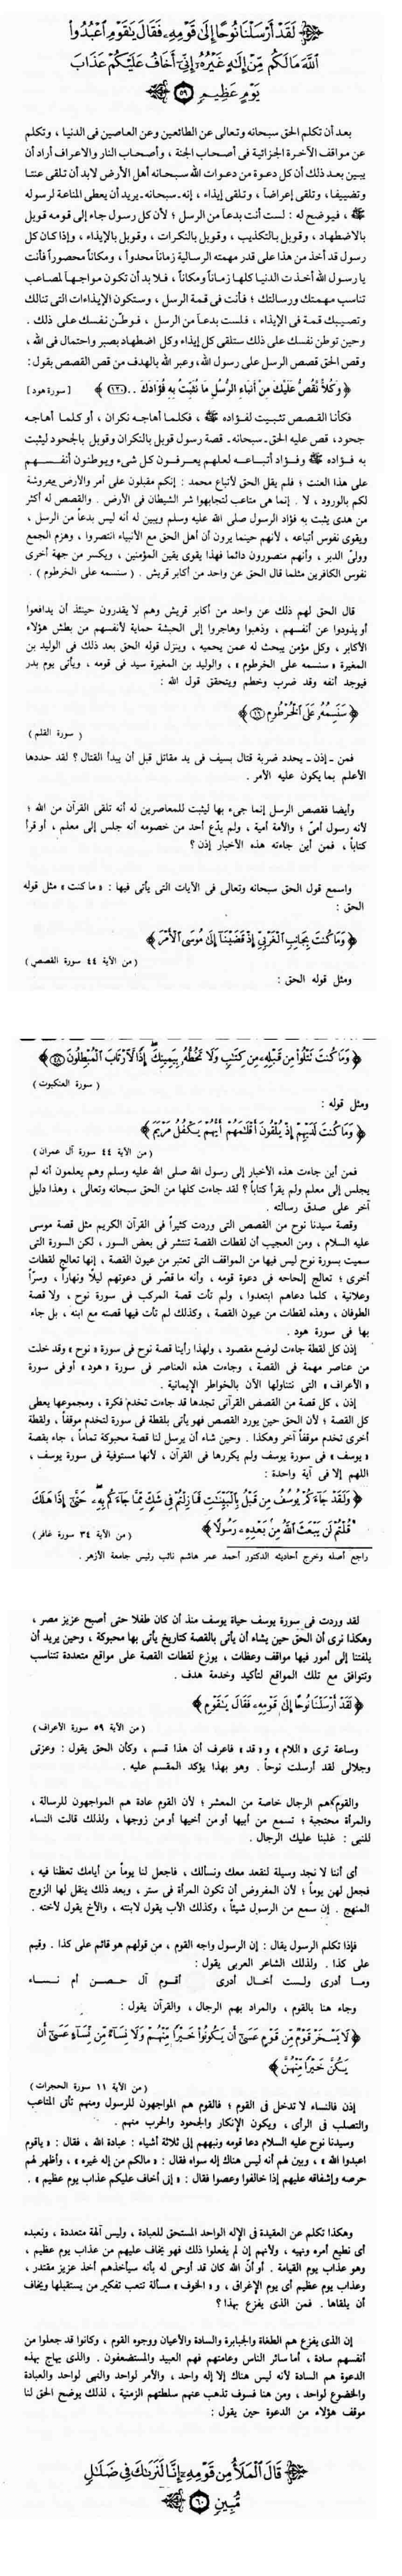 ﴿ لَقَدْ أَرْسَلْنَا نُوحًا إِلَىٰ قَوْمِهِ فَقَالَ يَا قَوْمِ اعْبُدُوا
اللَّهَ مَا لَكُم مِّنْ إِلَٰهٍ غَيْرُهُ إِنِّي أَخَافُ عَلَيْكُمْ عَذَابَ
يَوْمٍ عَظِيمٍ ٥٩ ﴾
بعد أن تكلم الحق سبحانه وتعالى عن الطائعين وعن العاصين فى الدنيا ، وتكلم
عن مواقف الآخرة الجزائية فى أصحاب الجنة ، وأصحاب النار والاعراف أراد أن
يبين بعد ذلك أن كل دعوة من دعوات الله سبحانه أهل الأرض لابد أن تلقى عنتا
وتضييفا، وتلقى إعراضاً ، وتلقى إيذاء ، إنه ـ سبحانه ـ يريد أن يعطى المناعة لرسوله
ﷺ ، فيوضح له : لست أنت بدعاً من الرسل ؛ لأن كل رسول جاء إلى قومه قوبل
بالاضطهاد ، وقوبل بالتكذيب ، وقوبل بالنكرات ، وقوبل بالإيذاء ، وإذا كان كل
رسول قد أخذ من هذا على قدر مهمته الرسالية زماناً محدوداً ، ومكاناً محصوراً فأنت
يا رسول الله أخذت الدنيا كلها زماناً ومكاناً ، فلا بد أن تكون مواجهاً لمصاعب
تناسب مهمتك ورسالتك ؛ فأنت فى قمة الرسل ، وستكون الإيذاءات التى تنالك
وتصيبك قمة فى الإيذاء ، فلست بدعاً من الرسل ، فوطّن نفسك على ذلك .
وحين توطن نفسك على ذلك ستلقى كل إيذاء وكل اضطهاد بصبر واحتمال فى الله ،
وقص الحق قصص الرسل على رسول الله ، وعبر الله بالهدف من قص القصص بقول:
﴿ وَكُلاًّ نَّقُصُّ عَلَيْكَ مِنْ أَنبَاءِ الرُّسُلِ مَا نُثَبِّتُ بِهِ فُؤَادَكَ .. (١٢٠) ﴾ [ سورة هود ]
فكأنا القصص تثبيت لفؤاده ﷺ ، فكلما أهاجه نكران ، أو كلما أهاجه
جحود، قص عليه الحق ـ سبحانه ـ قصة رسول قوبل بالنكران وقوبل بالجحود ليثبت
به فؤاده ﷺ وفؤاد أتباعه لعلهم يعرفون كل شيء ويوطنون أنفسهم
على هذا العنت ؛ فلم يقل الحق لأتباع محمد : إنكم مقبلون على أمر والأرض مفروشة
لكم بالورود ، لا . إنما هى متاعب لتجابهوا شر الشيطان فى الأرض . والقصص له أكثر
من هدى يثبت به فؤاد الرسول صلى الله عليه وسلم ويبين له أنه ليس بدعاً من الرسل ،
ويقوى نفوس أتباعه ، لأنهم حينما يرون أن أهل الحق مع الأنبياء انتصروا ، وهزم الجمع
وولىّ الدبر ، وأنهم منصورون دائما فهذا يقوى يقين المؤمنين ، ويكسر من جهة أخرى
نفوس الكافرين مثلما قال الحق عن واحد من أكابر قريش . ( سنسمه على الخرطوم ) .
قال الحق لهم ذلك عن واحد من أكابر قريش وهم لا يقدرون حينئذ أن يدافعوا
أو يذودوا عن أنفسهم ، وذهبوا وهاجروا إلى الحبشة حماية لأنفسهم من بطش هؤلاء
الأكابر ، وكل مؤمن يبحث له عمن يحميه ، وينزل قوله الحق بعد ذلك فى الوليد بن
المغيرة « سنسمه على الخرطوم » ، والوليد بن المغيرة سيد فى قومه ، ويأتى يوم بدر
فيوجد أنفه وقد ضرب وخطم ويتحقق قول الله :
﴿ سَنَسِمُهُ عَلَى الْخُرْطُومِ (١٦) ﴾
( سورة القلم )
فمن ـ إذن ـ يحدد ضربة قتال بسيف فى يد مقاتل قبل أن يبدأ القتال ؟ لقد حددها
الأعلم بما يكون عليه الأمر .
وأيضا فقصص الرسل إنما جىء بها ليثبت للمعاصرين له أنه تلقى القرآن من الله ؛
لأنه رسول أمىّ ؛ والأمة أمية ، ولم يدّع أحد من خصومه أنه جلس إلى معلم ، أو قرأ
كتاباً ، فمن أين جاءته هذه الأخبار إذن ؟
واسمع قول الحق سبحانه وتعالى فى الآيات التى يأتى فيها : « ما كنت » مثل قوله
الحق :
﴿ وَمَا كُنتَ بِجَانِبِ الْغَرْبِيِّ إِذْ قَضَيْنَا إِلَىٰ مُوسَى الْأَمْرَ ﴾
( من الآية ٤٤ سورة القصص )
ومثل قوله الحق :
﴿ وَمَا كُنتَ تَتْلُو مِن قَبْلِهِ مِن كِتَابٍ وَلَا تَخُطُّهُ بِيَمِينِكَ إِذًا لَّارْتَابَ الْمُبْطِلُونَ (٤٨) ﴾
( سورة العنكبوت )
ومثل قوله :
﴿ وَمَا كُنتَ لَدَيْهِمْ إِذْ يُلْقُونَ أَقْلَامَهُمْ أَيُّهُمْ يَكْفُلُ مَرْيَمَ ﴾
( من الآية ٤٤ سورة آل عمران )
فمن أين جاءت هذه الأخبار إلى رسول الله صلى الله عليه وسلم وهم يعلمون أنه لم
يجلس إلى معلم ولم يقرأ كتاباً ؟ لقد جاءت كلها من الحق سبحانه وتعالى ، وهذا دليل
آخر على صدق رسالته .
وقصة سيدنا نوح من القصص التى وردت كثيراً فى القرآن الكريم مثل قصة موسى
عليه السلام ، ومن العجيب أن لقطات القصة تنتشر فى بعض السور ، لكن السورة التى
سميت بسورة نوح ليس فيها من المواقف التى تعتبر من عيون القصة ، إنها تعالج لقطات
أخرى ؛ تعالج إلحاحه فى دعوة قومه ، وأنه ما قصّر فى دعوتهم ليلًا ونهاراً ، وسرّاً
وعلانية ، كلما دعاهم ابتعدوا ، ولم تأت قصة المركب فى سورة نوح ، ولا قصة
الطوفان ، وهذه لقطات من عيون القصة ، وكذلك لم تأت فيها قصته مع ابنه ، بل جاء
بها فى سورة هود .
إذن كل لقطة جاءت لوضع مقصود ، ولهذا رأينا قصة نوح فى سورة « نوح » وقد خلت
من عناصر مهمة فى القصة ، وجاءت هذه العناصر فى سورة « هود » أو فى سورة
« الأعراف » التى نتناولها الآن بالخواطر الإيمانية .
إذن ، كل قصة من القصص القرآنى تجدها قد جاءت تخدم فكرة ، ومجموعها يعطى
كل القصة ؛ لأن الحق حين يورد القصص فهو يأتى بلقطة فى سورة لتخدم موقفاً ، ولقطة
أخرى تخدم موقفاً آخر وهكذا . وحين شاء أن يرسل لنا قصة محبوكة تماماً ، جاء بقصة
« يوسف » فى سورة يوسف ولم يكررها فى القرآن ، لأنها مستوفية فى سورة يوسف ،
اللهم إلا فى آية واحدة :
﴿ وَلَقَدْ جَاءَكُمْ يُوسُفُ مِن قَبْلُ بِالْبَيِّنَاتِ فَمَا زِلْتُمْ فِي شَكٍّ مِّمَّا جَاءَكُم بِهِ حَتَّىٰ إِذَا هَلَكَ
قُلْتُمْ لَن يَبْعَثَ اللَّهُ مِن بَعْدِهِ رَسُولًا ﴾ ( من الآية ٣٤ سورة غافر )
راجع أصله وخرج أحاديثه الدكتور أحمد عمر هاشم نائب رئيس جامعة الأزهر .
لقد وردت فى سورة يوسف حياة يوسف منذ أن كان طفلا حتى أصبح عزيز مصر ،
وهكذا نرى أن الحق حين يشاء أن يأتى بالقصة كتاريخ يأتى بها محبوكة ، وحين يريد أن
يلفتنا إلى أمور فيها مواقف وعظات ، يوزع لقطات القصة على مواقع متعددة تتناسب
وتتوافق مع تلك المواقع لتأكيد وخدمة هدف .
﴿ لَقَدْ أَرْسَلْنَا نُوحًا إِلَىٰ قَوْمِهِ فَقَالَ يَا قَوْمِ ﴾
( من الآية ٥٩ سورة الأعراف )
وساعة ترى « اللام » و « قد » فاعرف أن هذا قسم ، وكأن الحق يقول : وعزتى
وجلالى لقد أرسلت نوحاً . وهو بهذا يؤكد المقسم عليه .
والقوم هم الرجال خاصة من المعشر ؛ لأن القوم عادة هم المواجهون للرسالة ،
والمرأة محتجبة ؛ تسمع من أبيها أو من أخيها أو من زوجها ، ولذلك قالت النساء
للنبى : غلبنا عليك الرجال .
أى أننا لا نجد وسيلة لنقعد معك ونسألك ، فاجعل لنا يوماً من أيامك تعظنا فيه ،
فجعل لهن يوماً ؛ لأن المفروض أن تكون المرأة فى ستر ، وبعد ذلك ينقل لها الزوج
المنهج . إن سمع من الرسول شيئاً ، وكذلك الأب يقول لابنته ، والأخ يقول لأخته .
فإذا تكلم الرسول يقال : إن الرسول واجه القوم ، من قولهم هو قائم على كذا . وقيم
على كذا . ولذلك الشاعر العربى يقول :
وما أدرى ولست أخال أدرى أقوم آل حصن أم نساء
وجاء هنا بالقوم ، والمراد بهم الرجال ، والقرآن يقول :
﴿ لَا يَسْخَرْ قَوْمٌ مِّن قَوْمٍ عَسَىٰ أَن يَكُونُوا خَيْرًا مِّنْهُمْ وَلَا نِسَاءٌ مِّن نِّسَاءٍ عَسَىٰ أَن
يَكُنَّ خَيْرًا مِّنْهُنَّ ﴾
( من الآية ١١ سورة الحجرات )
إذن فالنساء لا تدخل فى القوم ؛ فالقوم هم المواجهون للرسول ومنهم تأتى المتاعب
والتصلب فى الرأى ، ويكون الإنكار والجحود والحرب منهم .
وسيدنا نوح عليه السلام دعا قومه ونبههم إلى ثلاثة أشياء : عبادة الله ، فقال : « ياقوم
اعبدوا الله » ، وبين لهم أنه ليس هناك إله سواه فقال : « مالكم من إله غيره » ، وأظهر لهم
حرصه وإشفاقه عليهم إذا خالفوا وعصوا فقال : « إنى أخاف عليكم عذاب يوم عظيم » .
وهكذا تكلم عن العقيدة فى الإله الواحد المستحق للعبادة ، وليس آلهة متعددة ، ونعبده
أى نطيع أمره ونهيه ، ولأنهم إن لم يفعلوا ذلك فهو يخاف عليهم من عذاب يوم عظيم ،
وهو عذاب يوم القيامة . أو أنّ الله كان قد أوحى له بأنه سيأخذهم أخذ عزيز مقتدر ،
وعذاب يوم عظيم أى يوم الإغراق ، و « الخوف » مسألة تتعب تفكير من يستقبلها ويخاف
أن يلقاها . فمن الذى يفزع بهذا ؟
إن الذى يفزع هم الطغاة والجبابرة والسادة والأعيان ووجوه القوم ، وكانوا قد جعلوا من
أنفسهم سادة ، أما سائر الناس وعامتهم فهم العبيد والمستضعفون . والذى يهاج بهذه
الدعوة هم السادة لأنه ليس هناك إلا إله واحد ، والأمر لواحد والنهى لواحد والعبادة
والخضوع لواحد ، ومن هنا فسوف تذهب عنهم سلطتهم الزمنية ، لذلك يوضح الحق لنا
موقف هؤلاء من الدعوة حين يقول :
﴿ قَالَ الْمَلَأُ مِن قَوْمِهِ إِنَّا لَنَرَاكَ فِي ضَلَالٍ
مُّبِينٍ ٦٠ ﴾